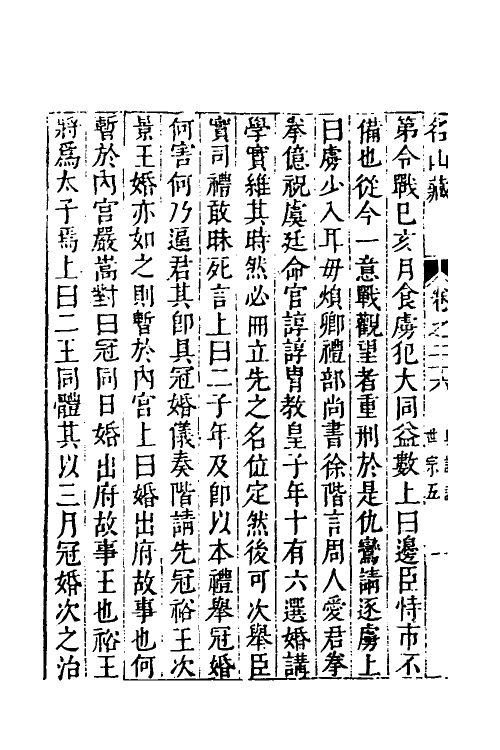 名山藏 卷之二十六 世宗五 一
第令戰巳亥月食虜犯大同益數上曰邊臣恃市不
備也從今一意戰觀望者重刑於是仇鸞請逐虜上
曰虜少入耳毋煩卿禮部尚書徐階言周人愛君拳
拳億祝虞廷命官諄諄胄教皇子年十有六選婚講
學實維其時然必冊立先之名位定然後可次舉臣
實司禮敢昧死言上曰二子年及卽以本禮舉冠婚
何害何乃逼君其卽具冠婚儀奏階請先冠裕王次
景王婚亦如之則暫於內宮上曰婚出府故事也何
暫於內宮嚴嵩對曰冠同日婚出府故事王也裕王
將爲太子焉上曰二王同體其以三月冠婚次之治